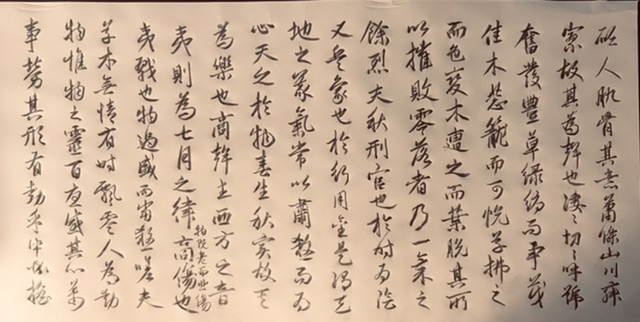 砭人肌骨其意蕭條山川寂
寥故其為聲也淒淒切切呼號
奮發豐草綠縟而爭茂
佳木蔥蘢而可悅草拂之
而色變木遭之而葉脫其所
以摧敗零落者乃一氣之
餘烈夫秋刑官也於時為陰
又兵象也於行用金是謂天
地之義氣常以肅殺而為
心天之於物春生秋實故其
為樂也商聲主西方之音
夷則為七月之律商傷也
物既老而悲傷
夷戮也物過盛而當殺嗟夫
草木無情有時飄零人為動
物惟物之靈百憂感其心萬
事勞其形有動乎中必搖